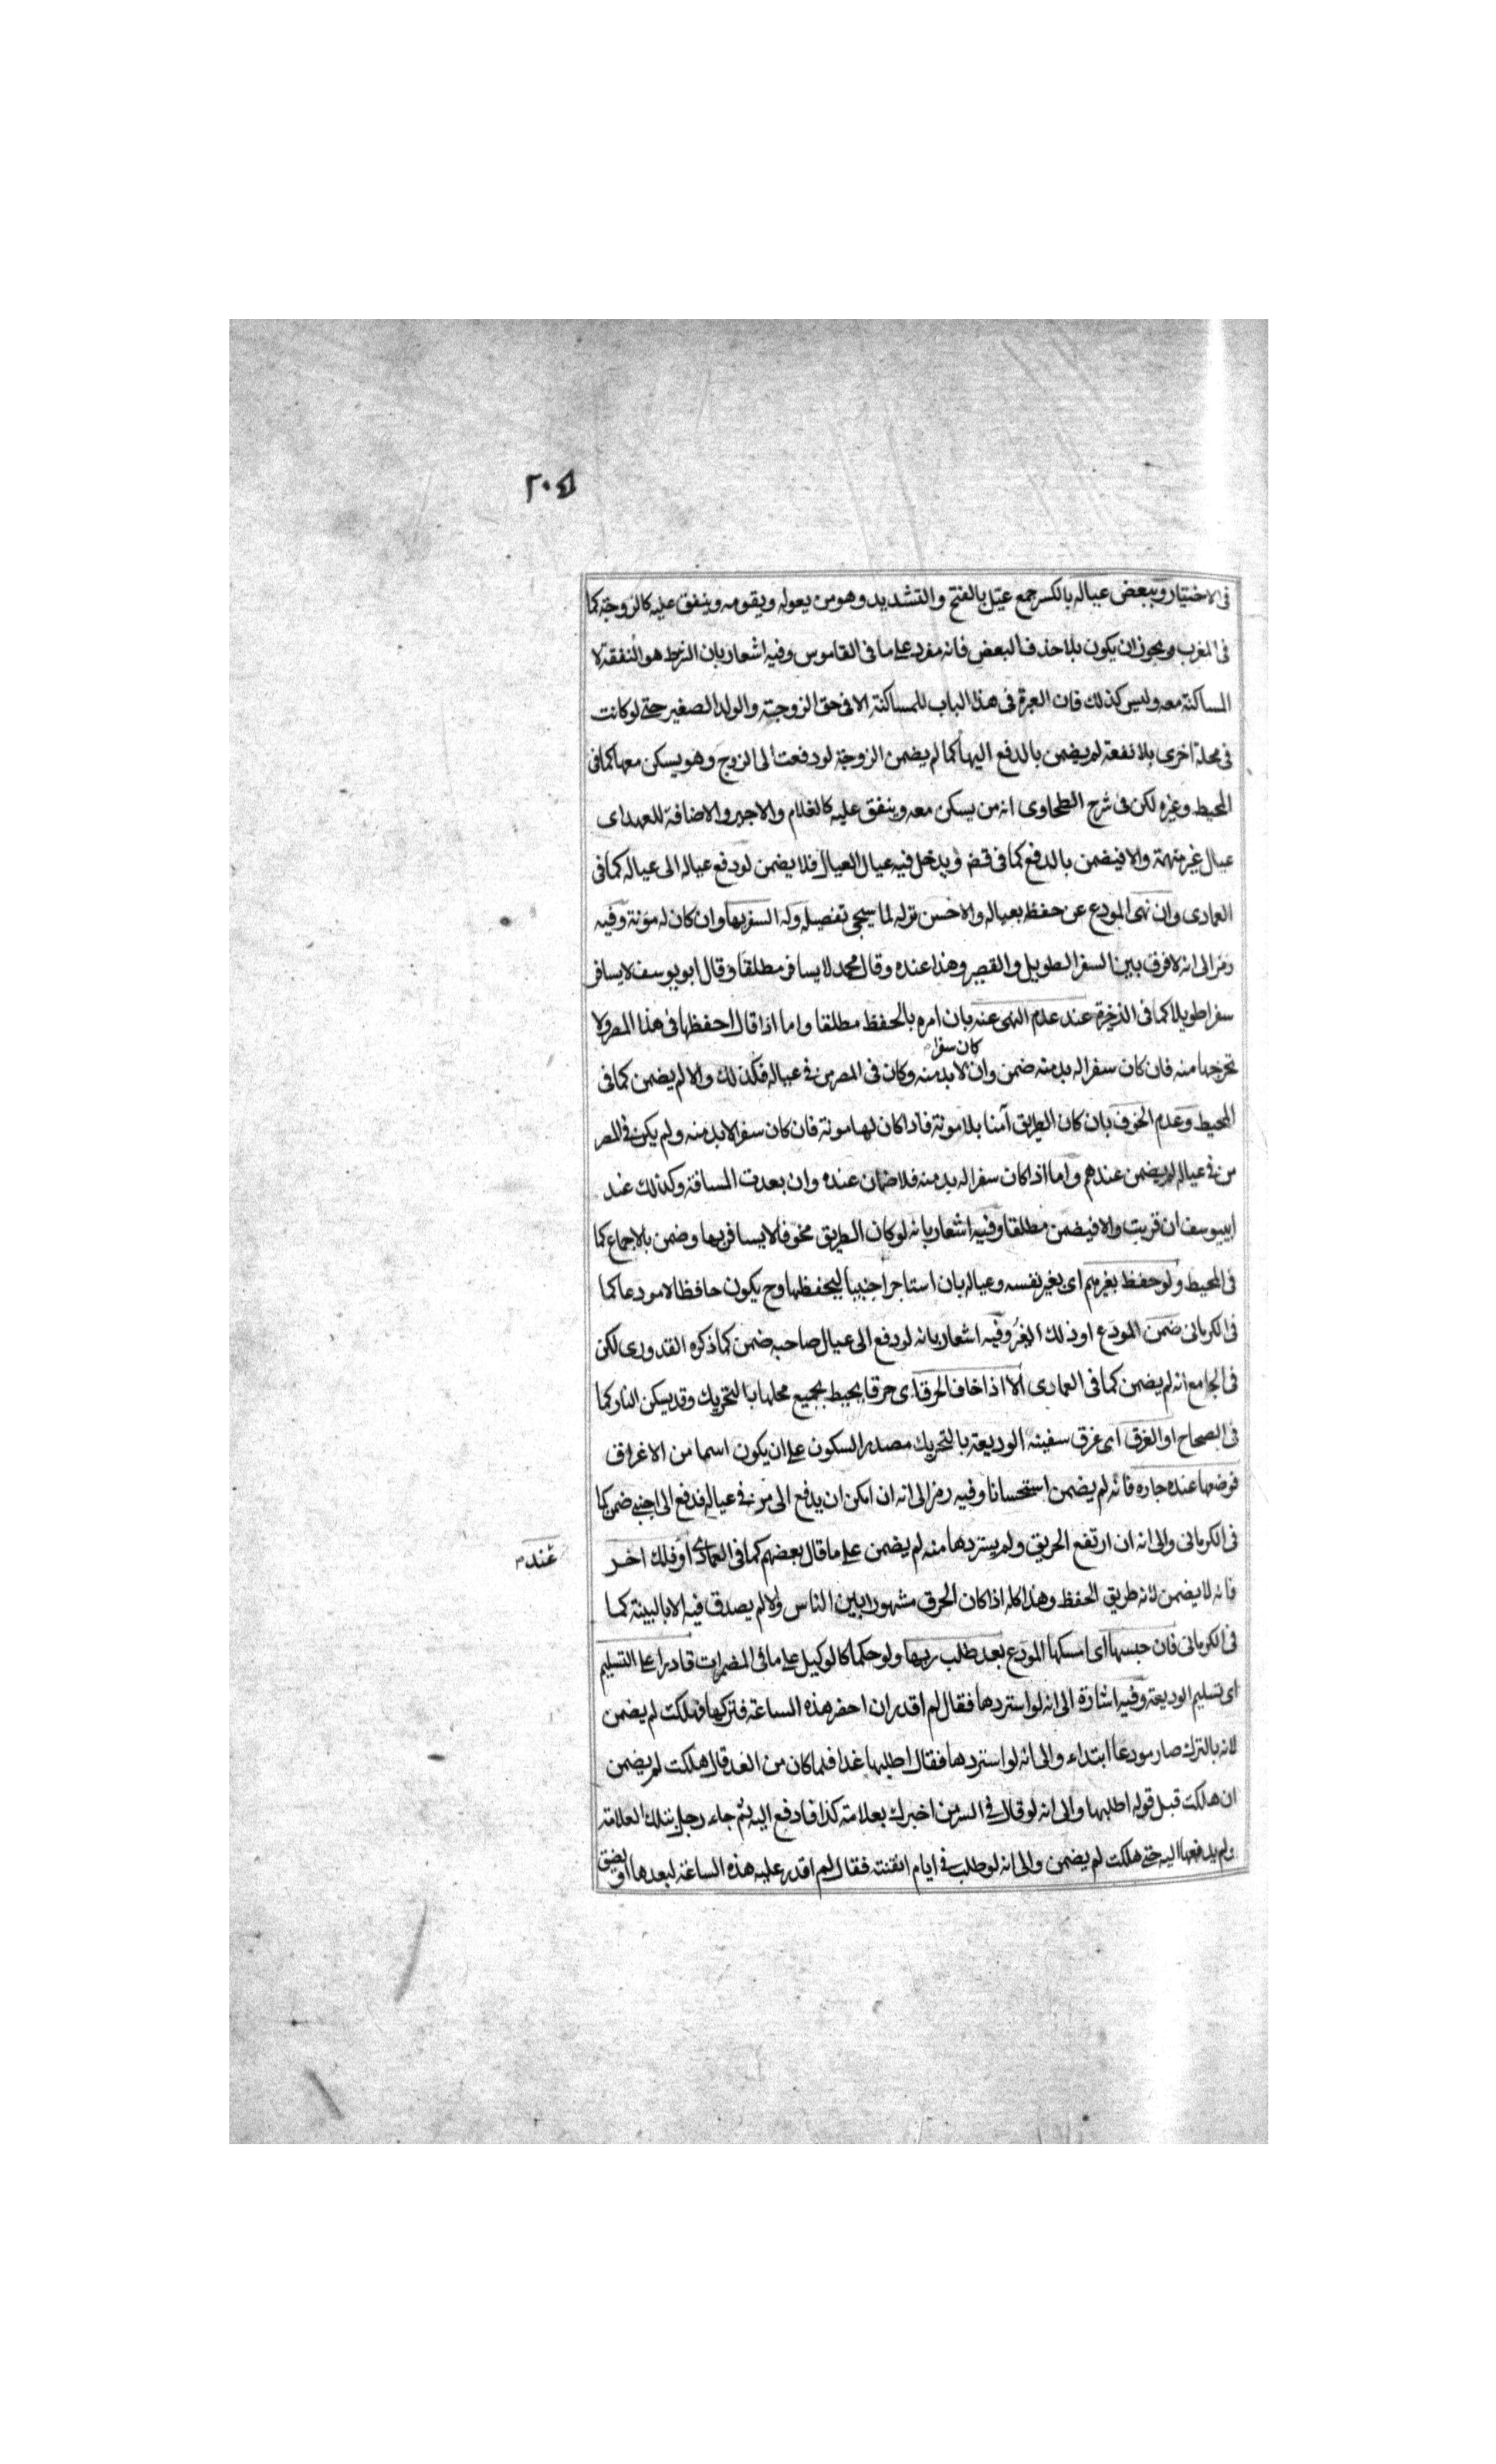 ٢٠٤
فى الاختيار وببعض عياله بالكسر جمع عيّل بالفتح والتشديد وهو من يعوله ويقومه وينفق عليه كالزوجة كما
فى المغرب ويجوز ان يكون بلا حذف البعض فانه مفرد على ما فى القاموس وفيه اشعار بان الشرط هو النفقة لا
المساكنة معه وليس كذلك فان العبرة فى هذا الباب للمساكنة الا فى حق الزوجة والولد الصغير حتى لو كانت
فى محلة اخرى بلا نفقة لم يضمن بالدفع اليها كما لم يضمن الزوجة لو دفعت الى الزوج وهو يسكن معها كما فى
المحيط وغيره لكن فى شرح الطحاوى انه من يسكن معه وينفق عليه كالغلام والاجير والاضافة للعهد اى
عيال غير متهمة والا فيضمن بالدفع كما فى قض ويدخل فيه عيال العيال فلا يضمن لو دفع عياله الى عياله كما فى
العمادى وان نهى المودع عن حفظ بعياله والاحسن تركه لما سيجئ تفصيله وله السفر بها وان كان له مؤنة وفيه
رمز الى انه لا فرق بين السفر الطويل والقصير وهذا عنده وقال محمد لا يسافر مطلقا وقال ابو يوسف لا يسافر
سفرا طويلا كما فى الذخيرة عند عدم النهى عنه بان امره بالحفظ مطلقا واما اذا قال احفظها فى هذا المصر ولا
كان سفرا
تخرجها منه فان كان سفرا له بد منه ضمن وان لا بد منه وكان فى المصر من فى عياله فكذلك والا لم يضمن كما فى
المحيط وعدم الخوف بان كان الطريق آمنا بلا مونة فاذا كان لها مونة فان كان سفرا لا بد منه ولم يكن فى المصر
من فى عياله لم يضمن عندهم واما اذا كان سفرا له بد منه فلا ضمان عنده وان بعدت المسافة وكذلك عند
ابيوسف ان قربت والا فيضمن مطلقا وفيه اشعار بانه لو كان الطريق مخوفا لا يسافر بها وضمن بالاجماع كما
فى المحيط ولو حفظ بغيرهم اى بغير نفسه وعياله بان استاجر اجنبيا ليحفظها وح يكون حافظا لا مودعا كما
فى الكرمانى ضمن المودع او ذلك الغير وفيه اشعار بانه لو دفع الى عيال صاحبه ضمن كما ذكره القدورى لكن
فى الجامع انه لم يضمن كما فى العمادى الا اذا خاف الحرق اى حرقا يحيط بجميع محلها بالتحريك وقد يسكن النار كما
فى الصحاح او الغرق اى غرق سفينة الوديعة بالتحريك مصدر السكون على ان يكون اسما من الاغراق
فوضعها عنده جاره فانه لم يضمن استحسانا وفيه رمز الى انه ان امكن ان يدفع الى من فى عياله فدفع الى اجنبى ضمن كما
فى الكرمانى والى انه ان ارتفع الحريق ولم يستردها منه لم يضمن على ما قال بعضهم كما فى العمادى او فلك اخر
عند
فانه لا يضمن لانه طريق الحفظ وهذا كله اذا كان الحرق مشهورا بين الناس والا لم يصدق فيه الا بالبينة كما
فى الكرمانى فان حبسها اى امسكها المودع بعد طلب ربها ولو حكما كالوكيل على ما فى المضمرات قادرا على التسليم
اى تسليم الوديعة وفيه اشارة الى انه لو استردها فقال لم اقدر ان احضر هذه الساعة فتركها فهلكت لم يضمن
لانه بالترك صار مودعا ابتداء والى انه لو استردها فقال اطلبها غدا فلما كان من الغد قال هلكت لم يضمن
ان هلكت قبل قوله اطلبها والى انه لو قال فى السر من اخبرك بعلامة كذا فادفع اليه ثم جاء رجل بتلك العلامة
ولم يدفعها اليه حتى هلكت لم يضمن والى انه لو طلب فى ايام الفتنة فقال لم اقدر عليه هذه الساعة لبعدها او لضيق